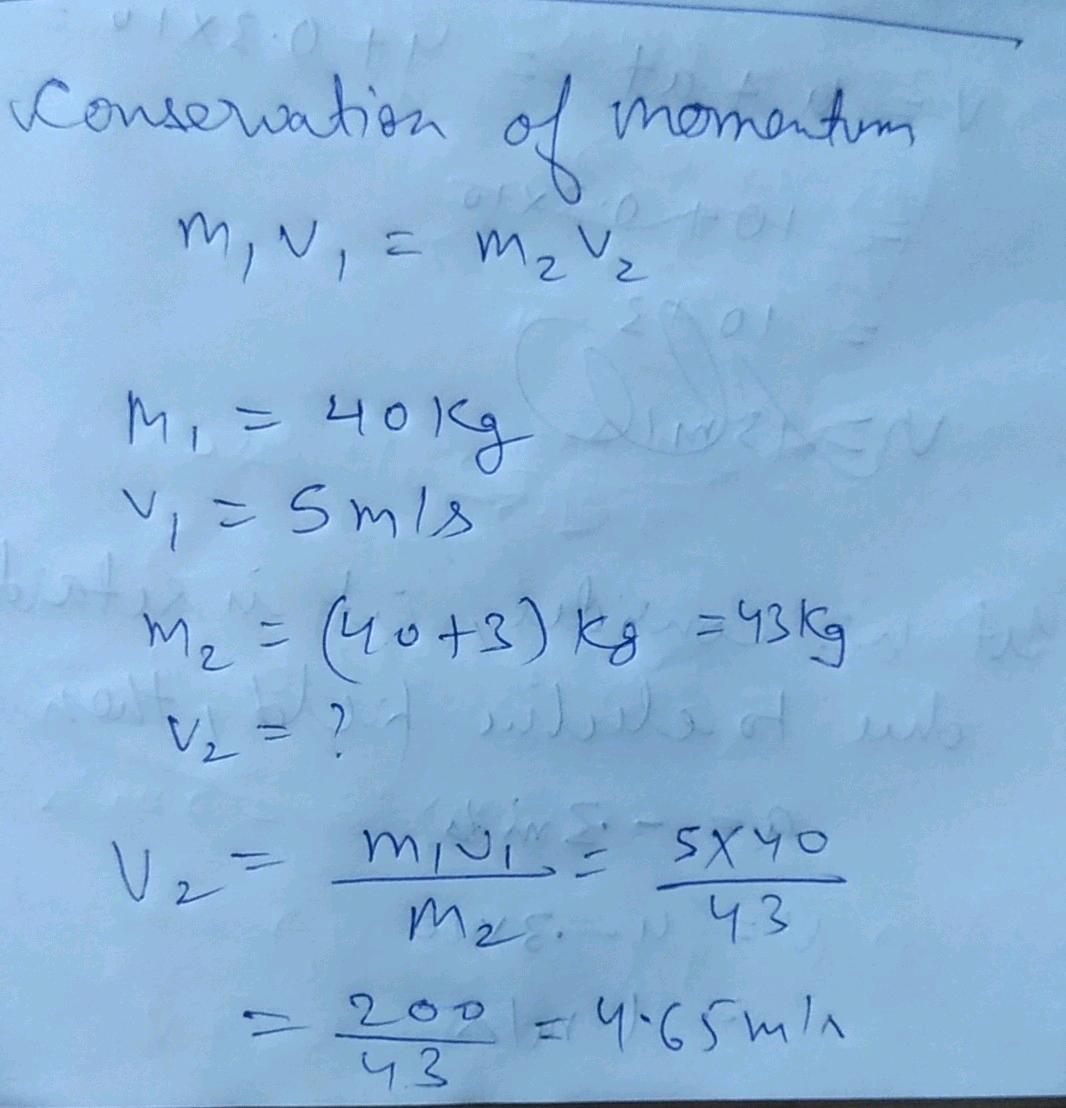 Conservation of momentum
m₁v₁ = m₂v₂
M₁ = 40kg
v₁ = 5m/s
m₂ = (40+3) kg = 43kg
v₂ = ?
V₂ = m₁v₁ / M₂ = 5×40 / 43
= 200 / 43 = 4.65m/s